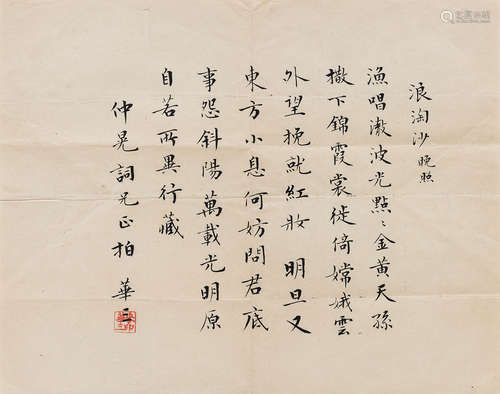 浪淘沙 晚照
漁唱激波光點點金黃天孫
撒下錦霞裳徙倚嫦娥雲
外望挽就紅妝 明旦又
東方小息何妨問君底
事怨斜陽萬載光明原
自若所異行藏
仲晃詞兄正拍 華